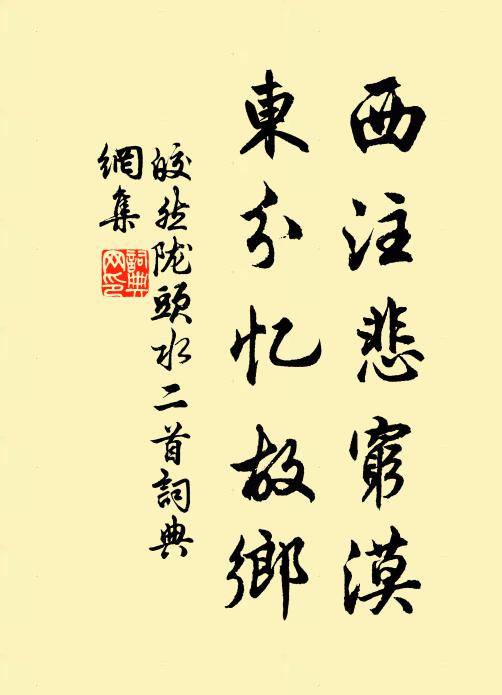 西注悲窮漠
東分忆故鄉
皎然陇頭水二首詞典
網集
詞典
网印